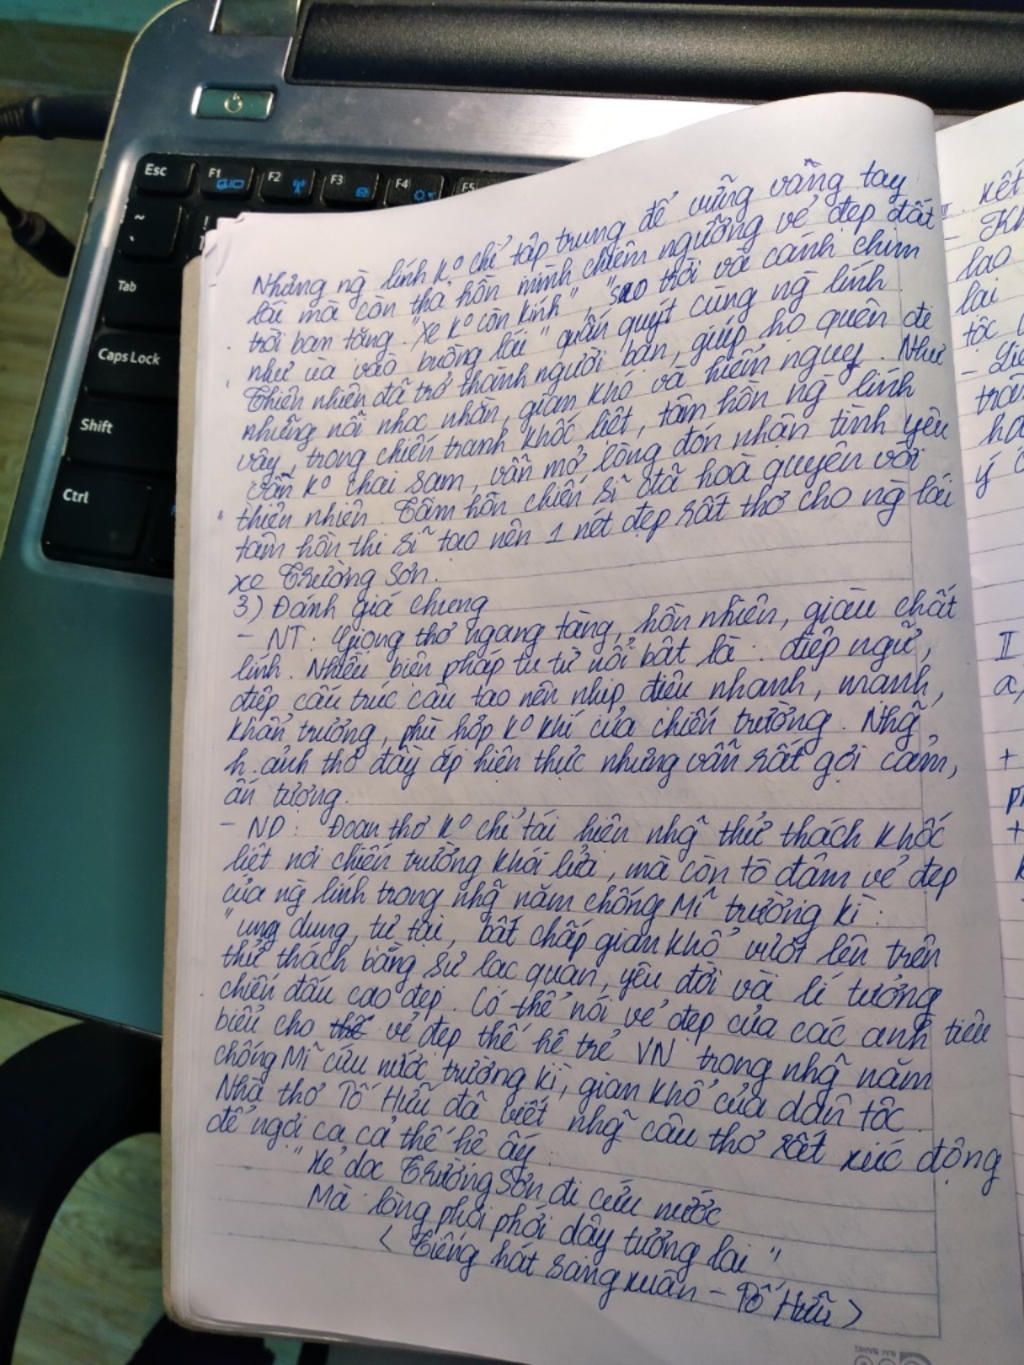 Esc
F1
F2
F3
F4
F5
~
!
Tab
Caps Lock
Shift
Ctrl
Những ng lính ko chỉ tập trung để vững vàng tay
lái mà còn thả hồn mình chiêm ngưỡng vẻ đẹp đất
trời ban tặng. "Xe ko còn kính", "sao trời và cánh chim
như ùa vào buồng lái" quấn quýt cùng ng lính.
Thiên nhiên đã trở thành người bạn, giúp họ quên đi
những nỗi nhọc nhằn, gian khó và hiểm nguy. Như
vậy, trong chiến tranh khốc liệt, tâm hồn ng lính
vẫn ko chai sạm, vẫn mở lòng đón nhận tình yêu
thiên nhiên. Tâm hồn chiến sĩ đã hoà quyện với
tâm hồn thi sĩ tạo nên 1 nét đẹp rất thơ cho ng lái
xe Trường Sơn.
3) Đánh giá chung
- NT: Giọng thơ ngang tàng, hồn nhiên, giàu chất
lính. Nhiều biện pháp tu từ nổi bật là: điệp ngữ,
điệp cấu trúc câu tạo nên nhịp điệu nhanh, mạnh,
khẩn trương, phù hợp ko khí của chiến trường. Nhg~
h.ảnh thơ đầy ắp hiện thực nhưng vẫn rất gợi cảm,
ấn tượng.
- ND: Đoạn thơ ko chỉ tái hiện nhg~ thử thách khốc
liệt nơi chiến trường khói lửa, mà còn tô đậm vẻ đẹp
của ng lính trong nhg~ năm chống Mĩ trường kì:
"ung dung, tự tại, bất chấp gian khổ vượt lên trên
thử thách bằng sự lạc quan, yêu đời và lí tưởng
chiến đấu cao đẹp. Có thể nói vẻ đẹp của các anh tiêu
biểu cho vẻ đẹp thế hệ trẻ VN trong nhg~ năm
chống Mĩ cứu nước trường kì, gian khổ của dân tộc.
Nhà thơ Tố Hữu đã viết nhg~ câu thơ rất xúc động
để ngợi ca cả thế hệ ấy:
"Xẻ dọc Trường Sơn đi cứu nước
Mà lòng phơi phới dậy tương lai"
< Tiếng hát sang xuân - Tố Hữu >
kết
- Kh
lao
lai
tộc
II
a,
+
+